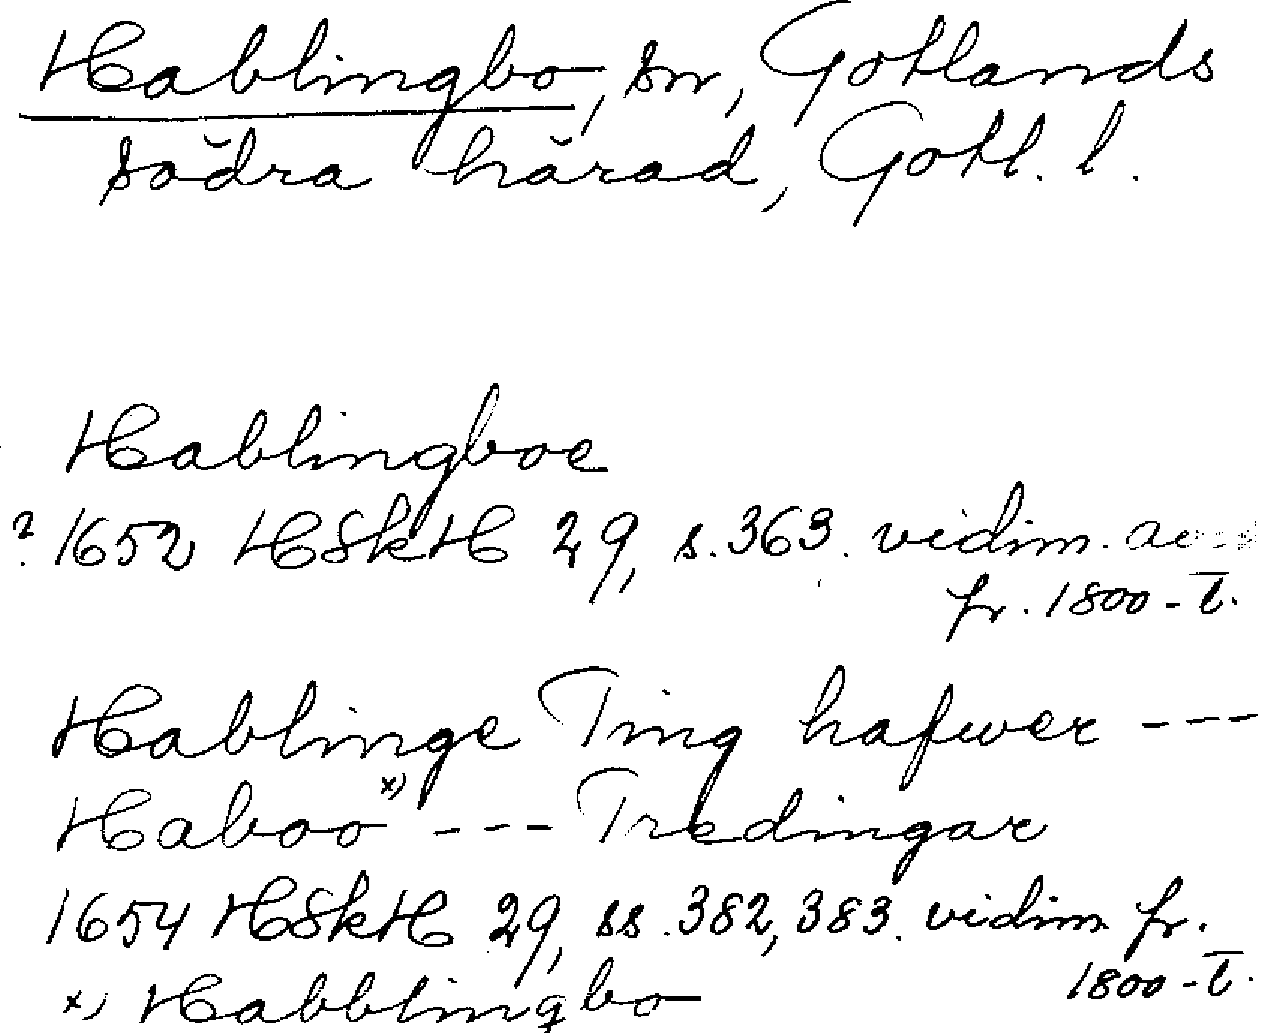 Hablingbo, sn, Gotlands
södra härad, Gotl. l.
Hablingboe
? 1652 HSkH 29, s. 363. vidim.
fr. 1800-t.
Hablinge Ting hafwer ---
Haboo x) --- Tredingar
1654 HSkH 29, ss. 382, 383. vidim fr.
1800-t.
x) Habblingbo